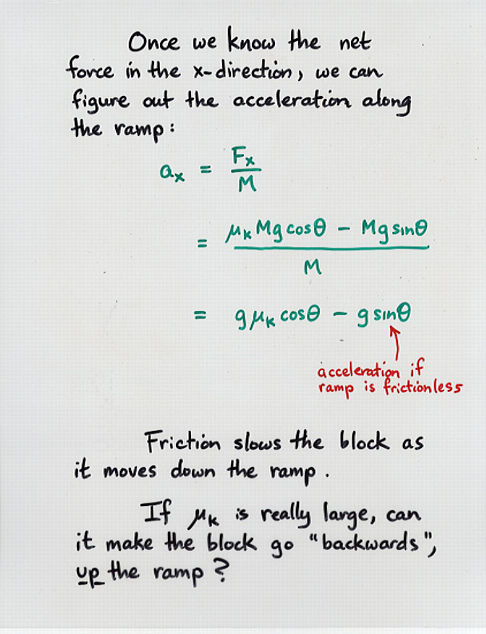 Once we know the net
force in the x-direction, we can
figure out the acceleration along
the ramp:
aₓ = Fₓ / M
= μₖ Mg cosθ − Mg sinθ / M
= g μₖ cosθ − g sinθ
acceleration if
ramp is frictionless
Friction slows the block as
it moves down the ramp.
If μₖ is really large, can
it make the block go "backwards",
up the ramp?